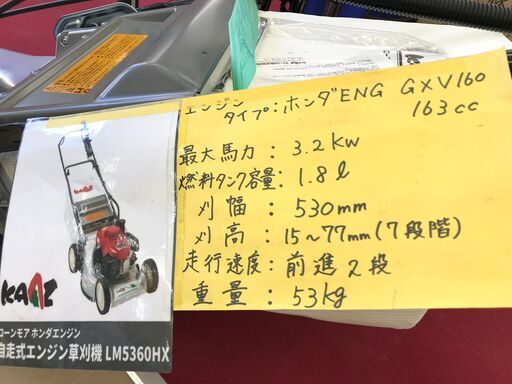 エンジン
タイプ：ホンダENG GXV160
163cc
最大馬力：3.2kw
燃料タンク容量：1.8ℓ
刈幅：530mm
刈高：15～77mm（7段階）
走行速度：前進2段
重量：53kg
KAAZ
ローンモア ホンダエンジン
自走式エンジン草刈機 LM5360HX